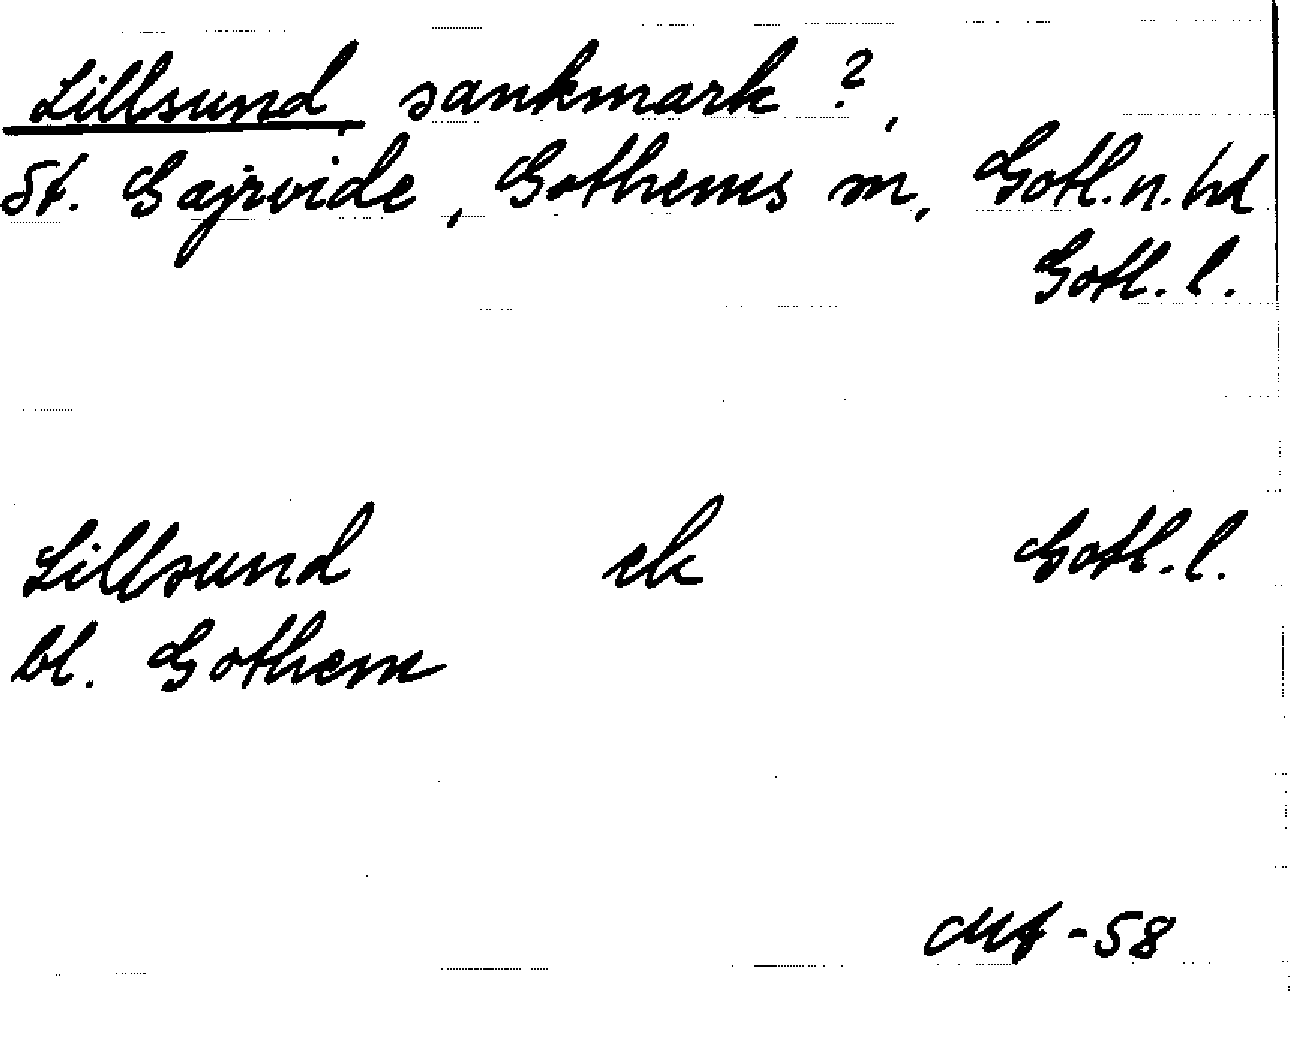 Lillsund, sankmark ?,
St. Gajrvide, Gothems sn, Gotl. n. hd
Gotl. l.
Lillsund ek Gotl. l.
bl. Gothem
-58